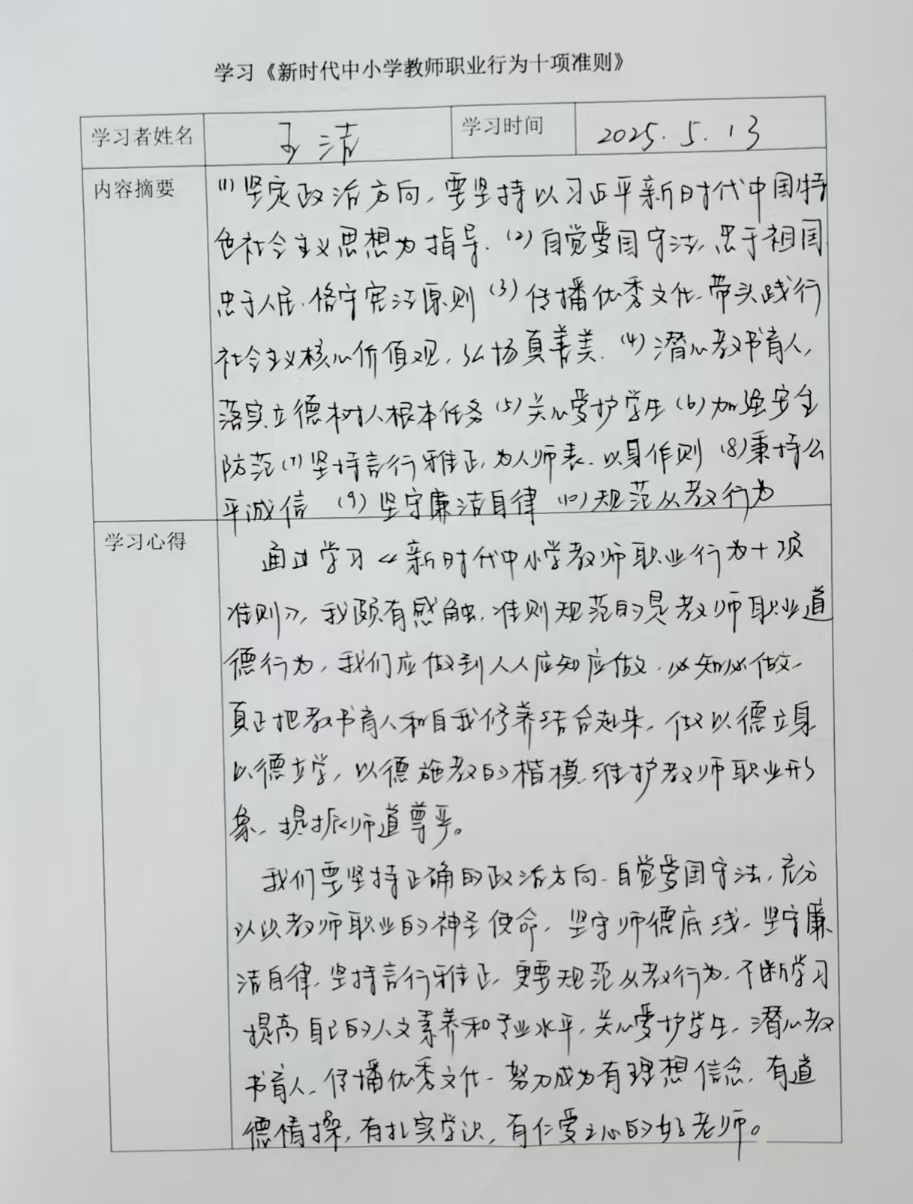 学习《新时代中小学教师职业行为十项准则》
学习者姓名 王洁 学习时间 2025.5.13
内容摘要
(1)坚定政治方向,要坚持以习近平新时代中国特
色社会主义思想为指导.(2)自觉爱国守法,忠于祖国
忠于人民,恪守宪法原则(3)传播优秀文化,带头践行
社会主义核心价值观,弘扬真善美.(4)潜心教书育人,
落实立德树人根本任务(5)关心爱护学生(6)加强安全
防范(7)坚持言行雅正,为人师表.以身作则(8)秉持公
平诚信(9)坚守廉洁自律(10)规范从教行为
学习心得
通过学习《新时代中小学教师职业行为十项
准则》,我颇有感触,准则规范的是教师职业道
德行为,我们应做到人人应知应做,必知必做,
真正把教书育人和自我修养结合起来,做以德立身
以德立学,以德施教的楷模.维护教师职业形
象,提振师道尊严。
我们要坚持正确的政治方向,自觉爱国守法,充分
认识教师职业的神圣使命,坚守师德底线,坚守廉
洁自律,坚持言行雅正,更要规范从教行为,不断学习
提高自己的人文素养和专业水平,关心爱护学生,潜心教
书育人,传播优秀文化,努力成为有理想信念,有道
德情操,有扎实学识,有仁爱之心的好老师。